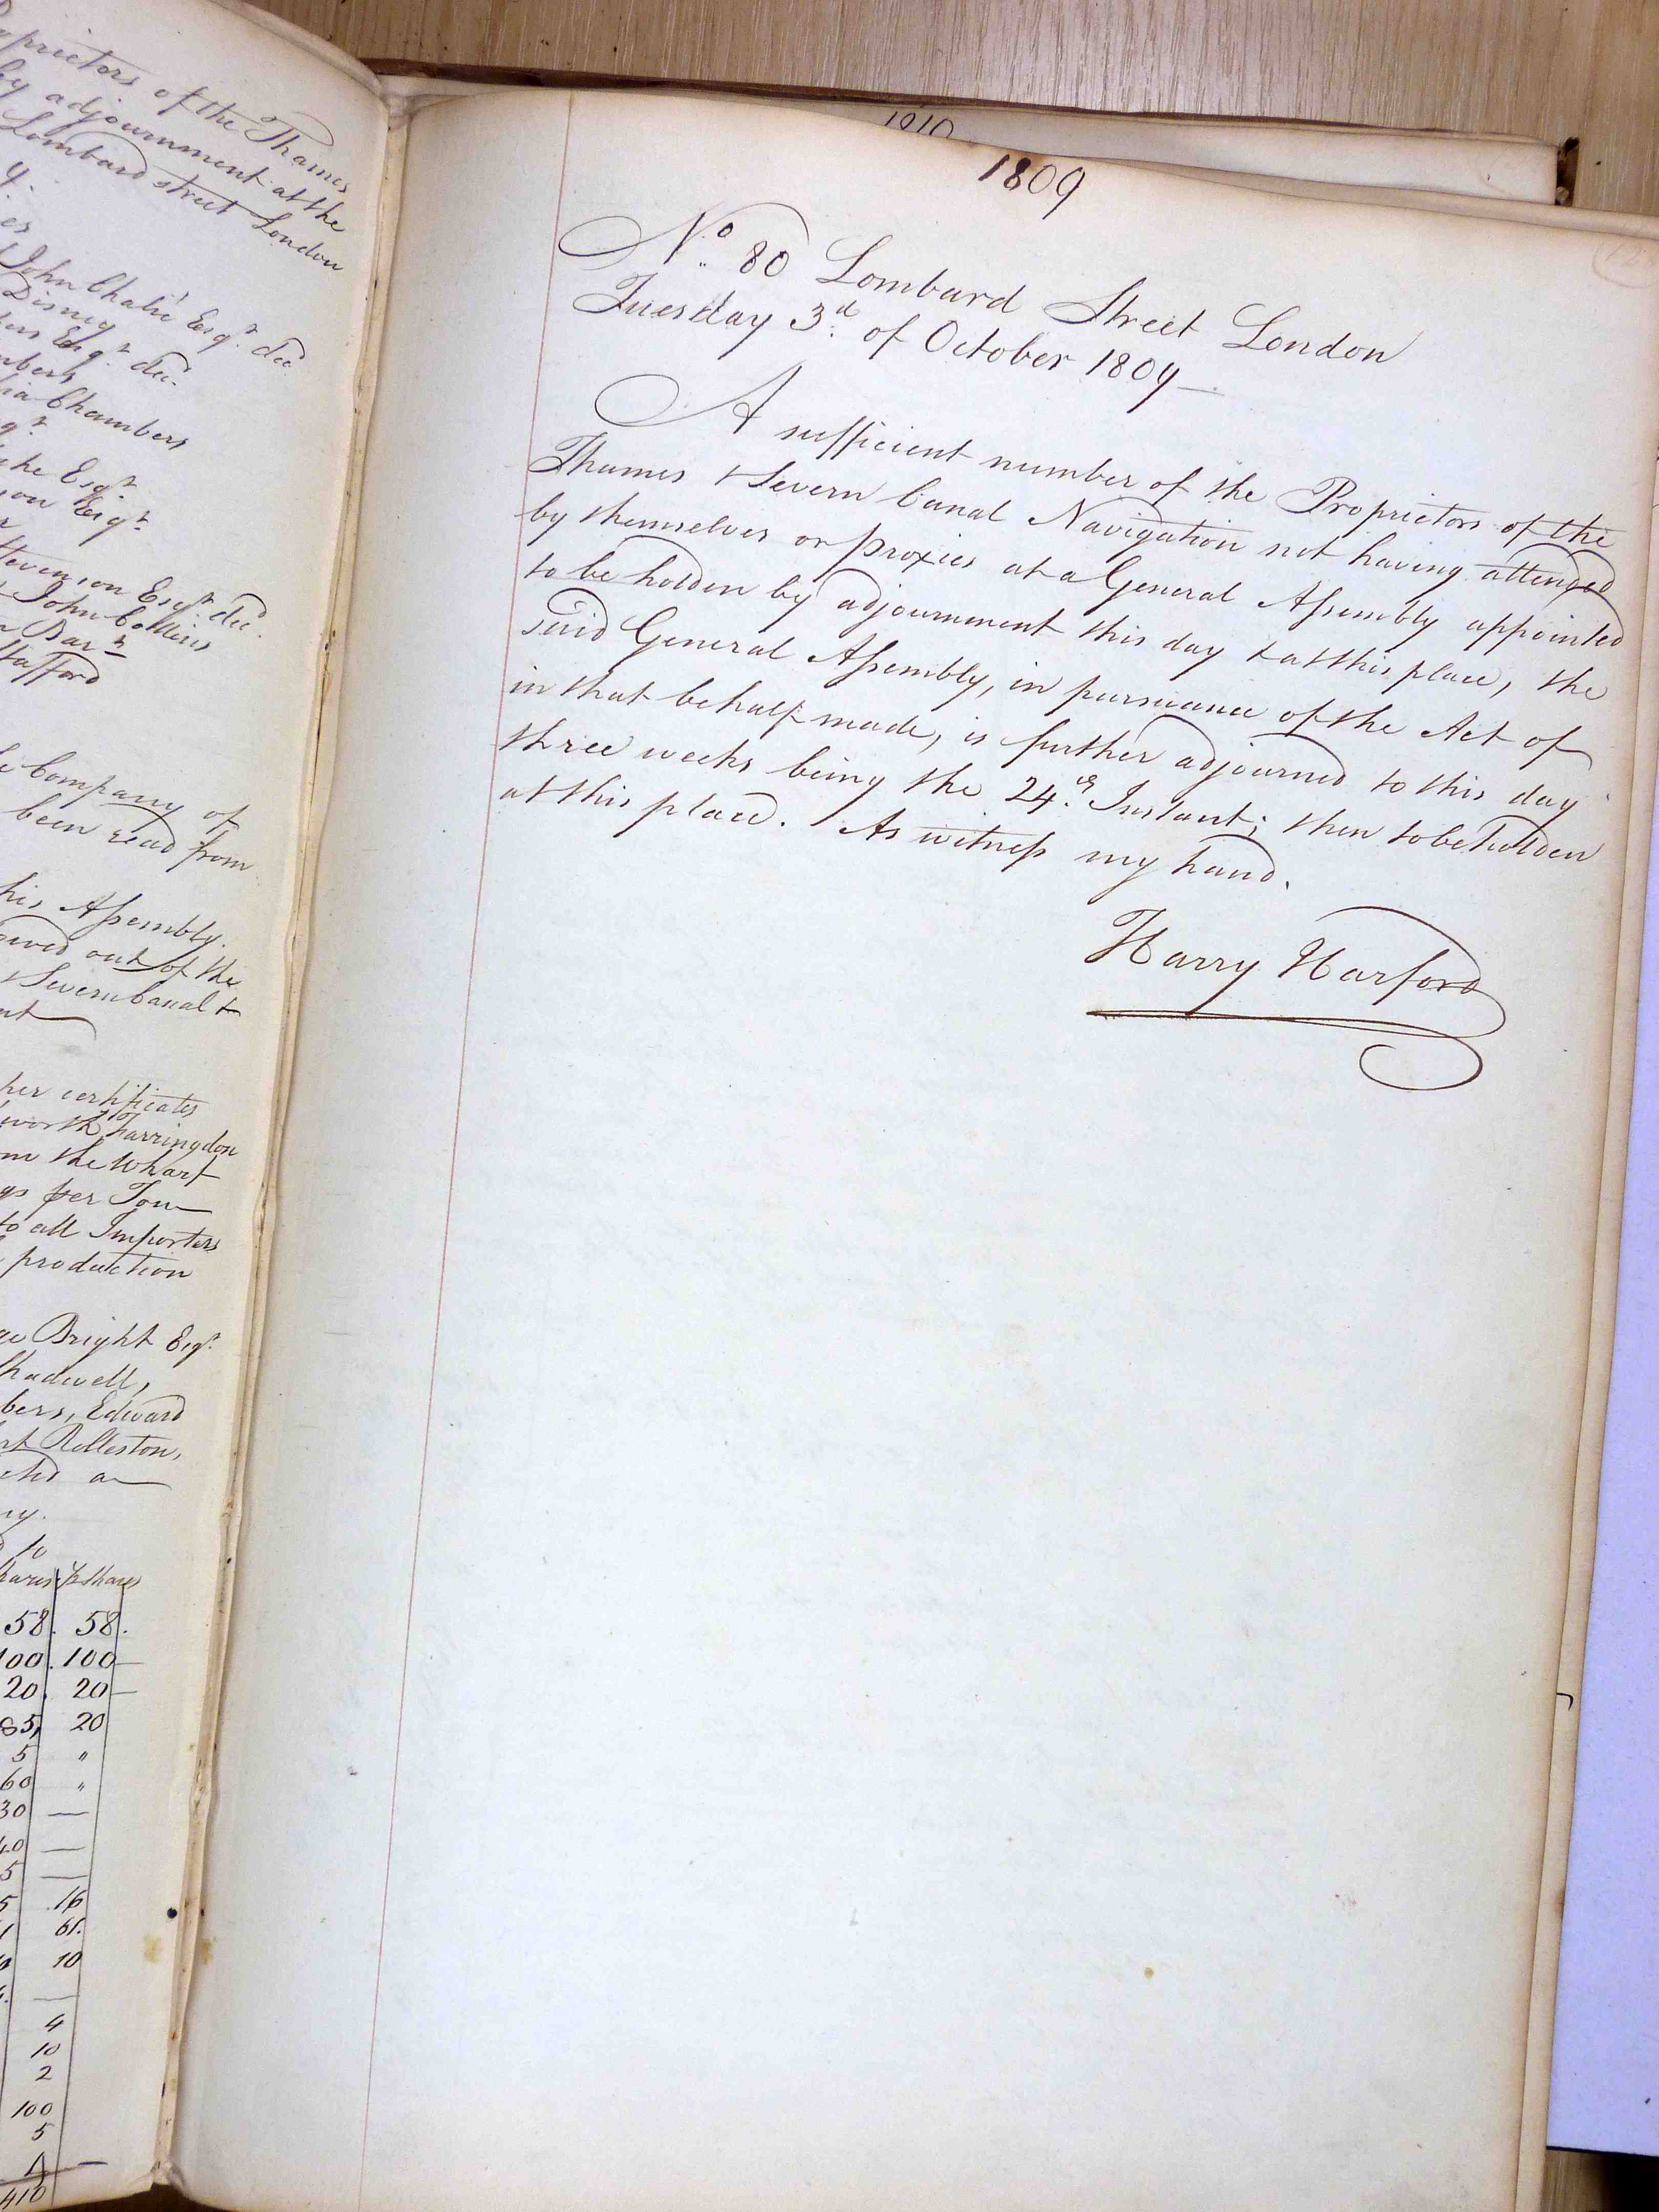 oprietors of the Thames
by adjournment at the
Lombard street London
y.
es
John Chalié Esqr. dec
Disney
hers Esqr. dec.
mbers
ia Chambers
qr
he Esqr
on Esqr.
Stevenson Esqr. dec.
John Collins
Bart
tafford
Company of
been read from
his Assembly.
owed out of the
& Severn Canal &
nt
her certificates
worth, to Farringdon
om the Wharf
gs per Ton
to all Importers
production
ge Bright Esqr.
hadwell,
bers, Edward
rt Rolleston,
cted a
ny.
to
hares ½ Shares
58. 58.
100. 100
20. 20
85, 20
5 "
60 "
30 —
40 —
5 —
5 .16
1 61.
10
—
4
10
2
100
5
4
410
1810
1809
No. 80 Lombard Street London
Tuesday 3d. of October 1809
A sufficient number of the Proprietors of the
Thames & Severn Canal Navigation not having attended
by themselves or proxies at a General Assembly appointed
to be holden by adjournment this day & at this place, the
said General Assembly, in pursuance of the Act of
in that behalf made, is further adjourned to this day
three weeks being the 24.th Instant; then to be holden
at this place. As witness my hand.
Harry Harford